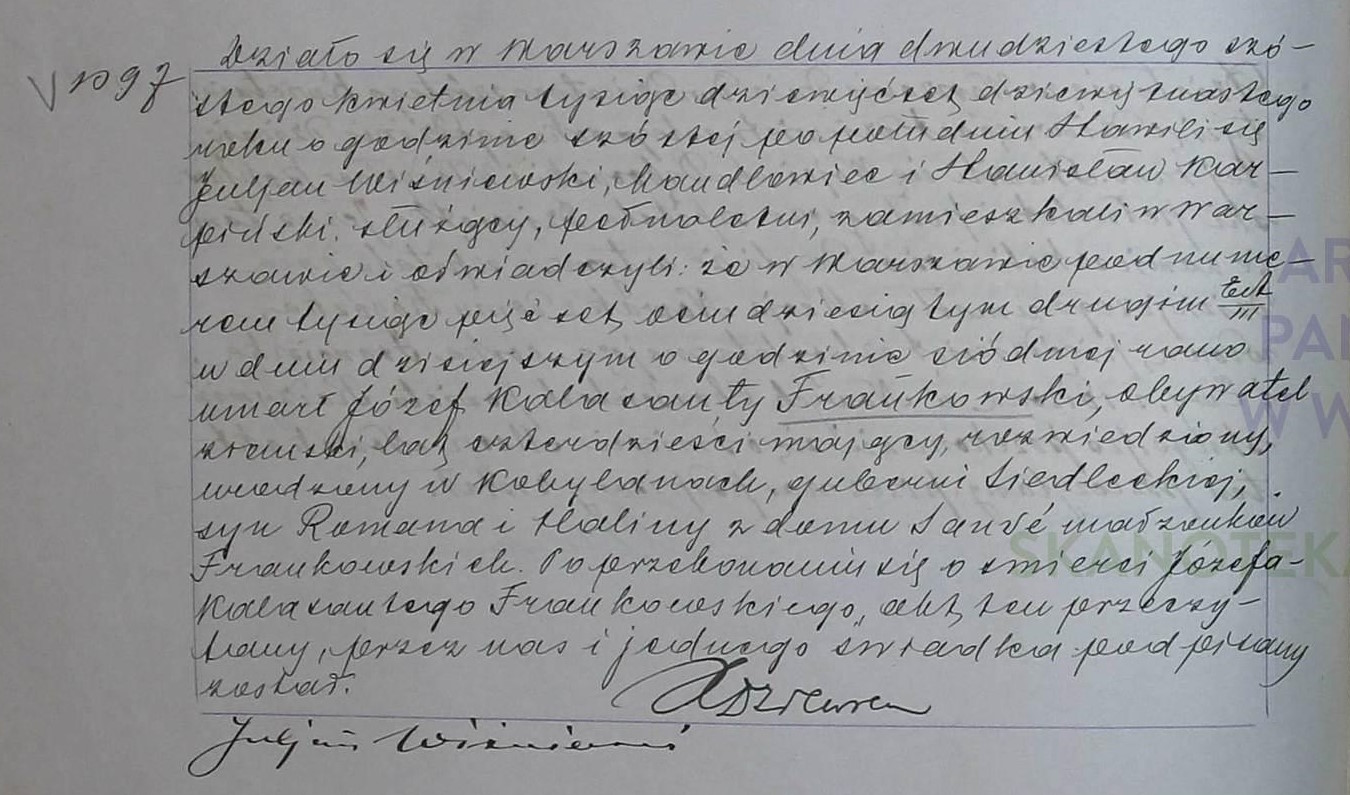 1097
Działo się w Warszawie dnia dwudziestego szó-
stego kwietnia tysiąc dziewięćset dziewiętnastego
roku o godzinie szóstej po południu Stawili się
Juljan Wiśniewski, Handlowiec i Stanisław Kar-
piński, służący, pełnoletni, zamieszkali w War-
szawie i oświadczyli: że w Warszawie pod nume-
rem tysiąc pięćset osiemdziesiątym drugim lit III
w dniu dzisiejszym o godzinie siódmej rano
umarł Józef Kalasanty Frankowski, obywatel
ziemski, lat czterdzieści mający, rozwiedziony,
urodzony w Kobylanach, gubernii Siedleckiej,
syn Romana i Haliny z domu Sauvé małżonków
Frankowskich. Po przekonaniu się o śmierci Józefa-
Kalasantego Frankowskiego, akt ten przeczy-
tany, przez nas i jednego świadka podpisany
został.
Juljan Wiśniewski
AR
PAŃ
W W
SKANOTEKA